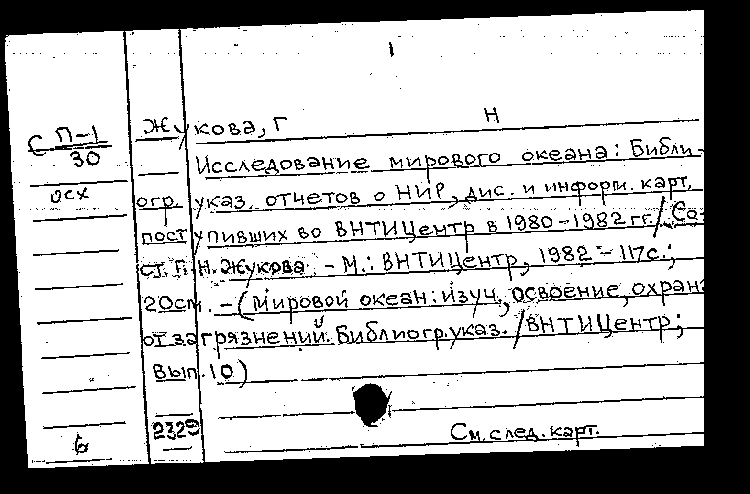 1
Жукова, Г Н
С П-1/30
Исследование мирового океана: Библи-
осх
огр. указ. отчетов о НИР, дис. и информ. карт,
поступивших во ВНТИЦентр в 1980-1982 гг. / Со-
ст. Г.Н. Жукова. - М.: ВНТИЦентр, 1982 - 117с.;
20см. - (Мировой океан: изуч., освоение, охрана
от загрязнений. Библиогр. указ. / ВНТИЦентр;
Вып. 10)
2329
См. след. карт.
б